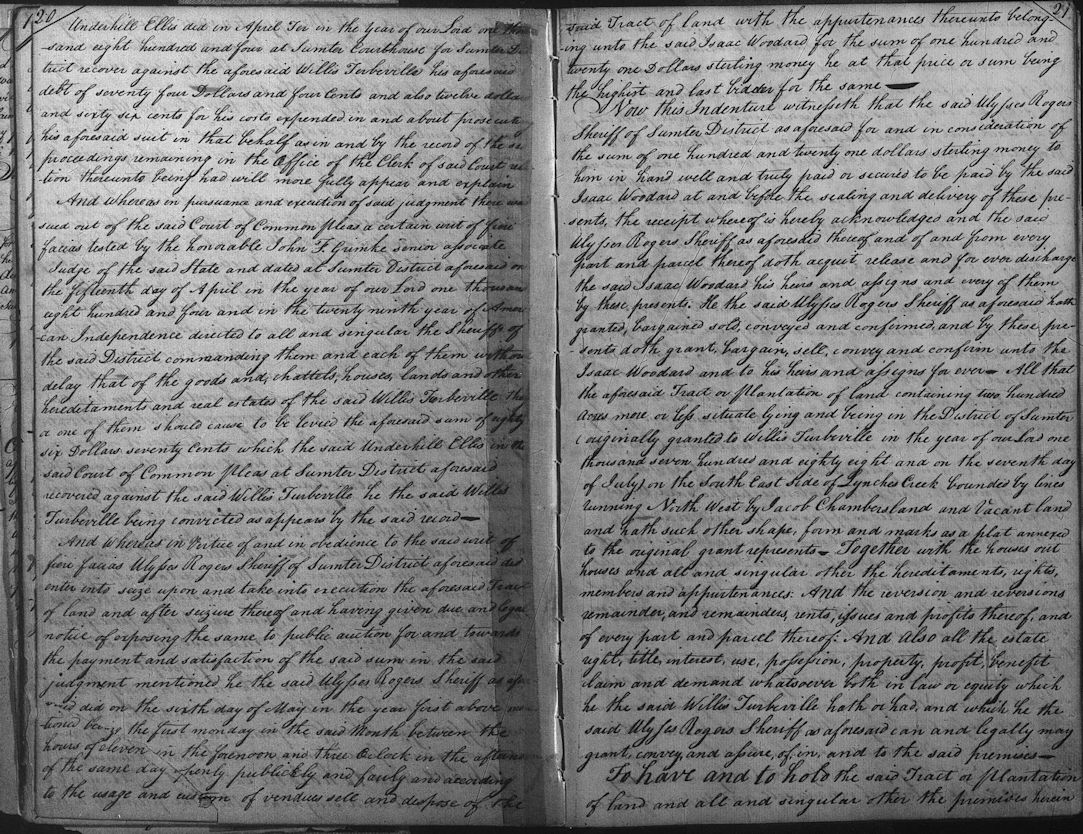 120
Underhill Ellis did in April Ter in the year of our Lord one thou-
sand eight hundred and four at Sumter Courthouse for Sumter Di-
trict recover against the aforesaid Willis Turbeville his aforesaid
debt of seventy four Dollars and four Cents and also twelve dollars
and sixty six cents for his costs expended in and about prosecuting
his aforesaid suit in that behalf as in and by the record of the
proceedings remaining in the Office of the Clerk of said Court
tion thereunto being had will more fully appear and explain
And whereas in pursuance and execution of said judgment there was
sued out of the said Court of Common Pleas a certain writ of fieri
facias tested by the honorable John F Grimke senior associate
Judge of the said State and dated at Sumter District aforesaid on
the fifteenth day of April in the year of our Lord one thousand
eight hundred and four and in the twenty ninth year of Ameri
can Independence directed to all and singular the Sheriffs of
the said District commanding them and each of them without
delay that of the goods and, chattels, houses, lands and other
hereditaments and real estates of the said Willis Turbeville they
or one of them should cause to be levied the aforesaid sum of eighty
six Dollars seventy Cents which the said Underhill Ellis in the
said Court of Common Pleas at Sumter District aforesaid
recovered against the said Willis Turbeville he the said Willis
Turbeville being convicted as appears by the said record—
And whereas in Virtue of and in obedience to the said writ of
fiere facias Ulysses Rogers Sheriff of Sumter District aforesaid did
enter into seize upon and take into execution the aforesaid Tract
of land and after seizure thereof and having given due and legal
notice of exposing the same to public auction for and towards
the payment and satisfaction of the said sum in the said
judgment mentioned he the said Ulysses Rogers Sheriff as afore
said did on the sixth day of May in the year first above men
tioned being the first monday in the said Month between the
hours of eleven in the forenoon and three Oclock in the afternoon
of the same day openly publickly and fairly and according
to the usage and custom of vendues sell and dispose of the
21
said Tract of land with the appurtenances thereunto belong-
ing unto the said Isaac Woodard for the sum of one hundred and
twenty one Dollars sterling money he at that price or sum being
the highist and last bidder for the same—
Now this Indenture witnesseth that the said Ulysses Rogers
Sheriff of Sumter District as aforesaid for and in consideration of
the sum of one hundred and twenty one dollars sterling money to
him in hand well and truly paid or secured to be paid by the said
Isaac Woodard at and before the sealing and delivery of these pre-
sents, the receipt where of is hereby acknowledged and the said
Ulysses Rogers Sheriff as aforesaid thereof and of and from every
part and parcel thereof doth acquit release and for ever discharge
the said Isaac Woodard his heirs and assigns and every of them
by these presents. He the said Ulysses Rogers Sheriff as aforesaid hath
granted, bargained sold, conveyed and confirmed, and by these pre-
-sents doth grant, bargain, sell, convey and confirm unto the
Isaac Woodard and to his heirs and assigns for ever— All that
the aforesaid Tract or Plantation of land containing two hundred
Acres more or less situate lying and being in the District of Sumter
(originally granted to Willis Turbeville in the year of our Lord one
thousand seven hundred and eighty eight and on the seventh day
of July) on the South East Side of Lynches Creek bounded by lines
running North West by Jacob Chambers land and Vacant land
and hath such other shape, form and marks as a plat annexed
to the original grant represents— Together with the houses out
houses and all and singular other the hereditaments, rights,
members and appurtenances. And the reversion and reversions
remainder, and remainders, rents, issues and profits thereof, and
of every part and parcell thereof: And Also all the estate
right, title, interest, use, possession, property, profit, benefit
claim and demand whatsoever both in law or equity which
he the said Willis Turbeville hath or had, and which he the
said Ulysses Rogers Sheriff as aforesaid can and legally may
grant, convey, and assure, of, in, and to the said premises—
To have and to hold the said Tract or Plantation
of land and all and singular other the premises herein